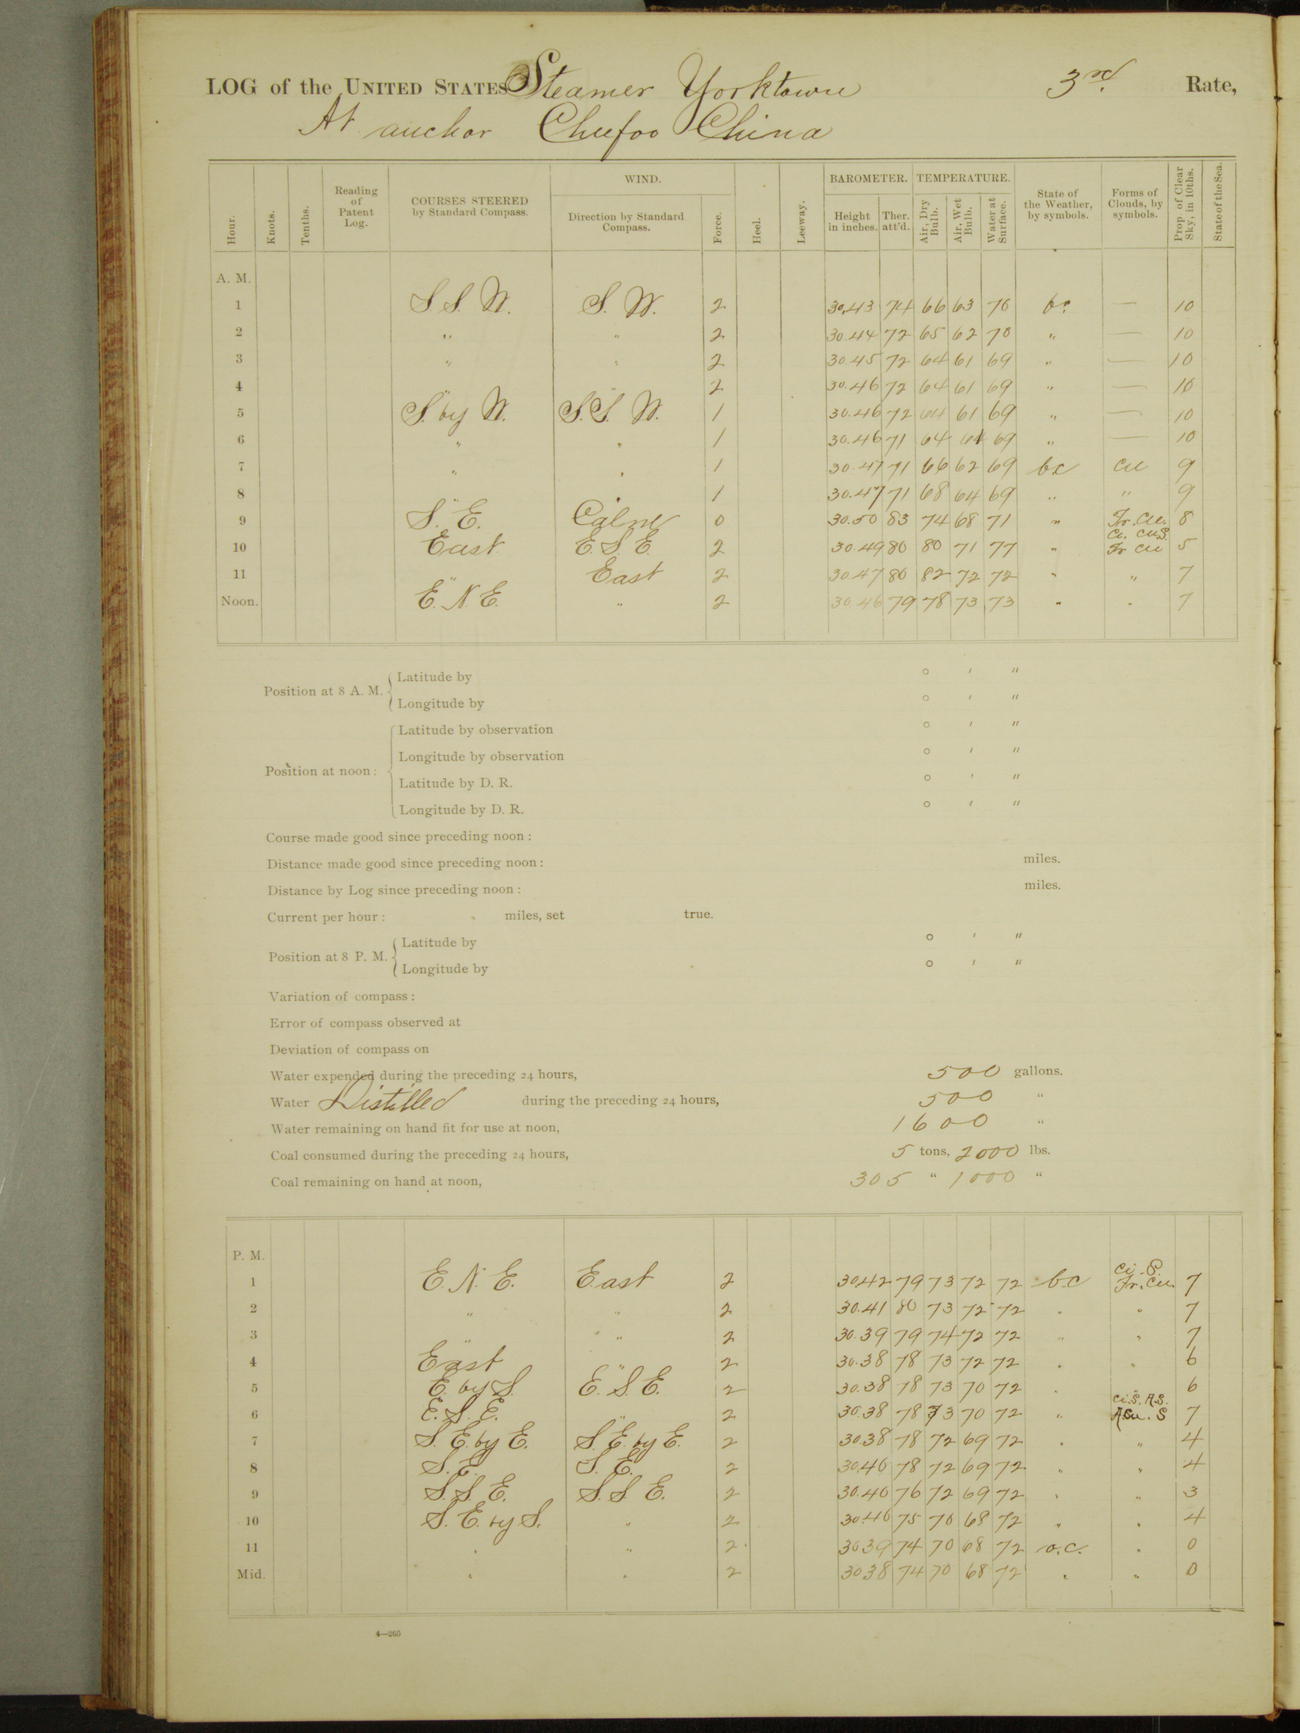 LOG of the UNITED STATES Steamer Yorktown 3rd. Rate,
At anchor Chefoo China
Hour. Knots. Tenths. Reading of Patent Log. COURSES STEERED by Standard Compass. WIND. Direction by Standard Compass. Force. Heel. Leeway. BAROMETER. Height in inches. Ther. att'd. TEMPERATURE. Air, Dry Bulb. Air, Wet Bulb. Water at Surface. State of the Weather, by symbols. Forms of Clouds, by symbols. Prop. of Clear Sky, in 10ths. State of the Sea.
A. M.
1 S. S. W. S. W. 2 30.43 74 66 63 70 bc. — 10
2 " " 2 30.44 72 65 62 70 " — 10
3 " " 2 30.45 72 64 61 69 " — 10
4 " " 2 30.46 72 64 61 69 " — 10
5 S. by W. S. S. W. 1 30.46 72 64 61 69 " — 10
6 " " 1 30.46 71 64 61 69 " — 10
7 " " 1 30.47 71 66 62 69 bc cu 9
8 " " 1 30.47 71 68 64 69 " " 9
9 S. E. Calm 0 30.50 83 74 68 71 " Fr. Cu. 8
10 East E S E 2 30.49 80 80 71 77 " Ci. Cu S. Fr Cu 5
11 " East 2 30.47 80 82 72 72 " " 7
Noon. E. N. E. " 2 30.46 79 78 73 73 " " 7
Position at 8 A. M. Latitude by ° ′ ″
Longitude by ° ′ ″
Position at noon: Latitude by observation ° ′ ″
Longitude by observation ° ′ ″
Latitude by D. R. ° ′ ″
Longitude by D. R. ° ′ ″
Course made good since preceding noon:
Distance made good since preceding noon: miles.
Distance by Log since preceding noon: miles.
Current per hour: miles, set true.
Position at 8 P. M. Latitude by ° ′ ″
Longitude by ° ′ ″
Variation of compass:
Error of compass observed at
Deviation of compass on
Water expended during the preceding 24 hours, 500 gallons.
Water Distilled during the preceding 24 hours, 500 "
Water remaining on hand fit for use at noon, 1600 "
Coal consumed during the preceding 24 hours, 5 tons, 2000 lbs.
Coal remaining on hand at noon, 305 " 1000 "
P. M.
1 E. N. E. East 2 30.42 79 73 72 72 bc Ci. S. Fr. Cu. 7
2 " " 2 30.41 80 73 72 72 " " 7
3 " " 2 30.39 79 74 72 72 " " 7
4 East " 2 30.38 78 73 72 72 " " 6
5 E. by S. E. S. E. 2 30.38 78 73 70 72 " 6
6 E. S. E. " 2 30.38 78 73 70 72 " Ci. S. A. S. A Cu. S 7
7 S. E. by E. S. E. by E. 2 30.38 78 72 69 72 " " 4
8 S. E. S. E. 2 30.40 78 72 69 72 " " 4
9 S. S. E. S. S. E. 2 30.40 76 72 69 72 " " 3
10 S. E. by S. " 2 30.40 75 70 68 72 " " 4
11 " " 2 30.39 74 70 68 72 o.c. " 0
Mid. " " 2 30.38 74 70 68 72 " " 0
4—265